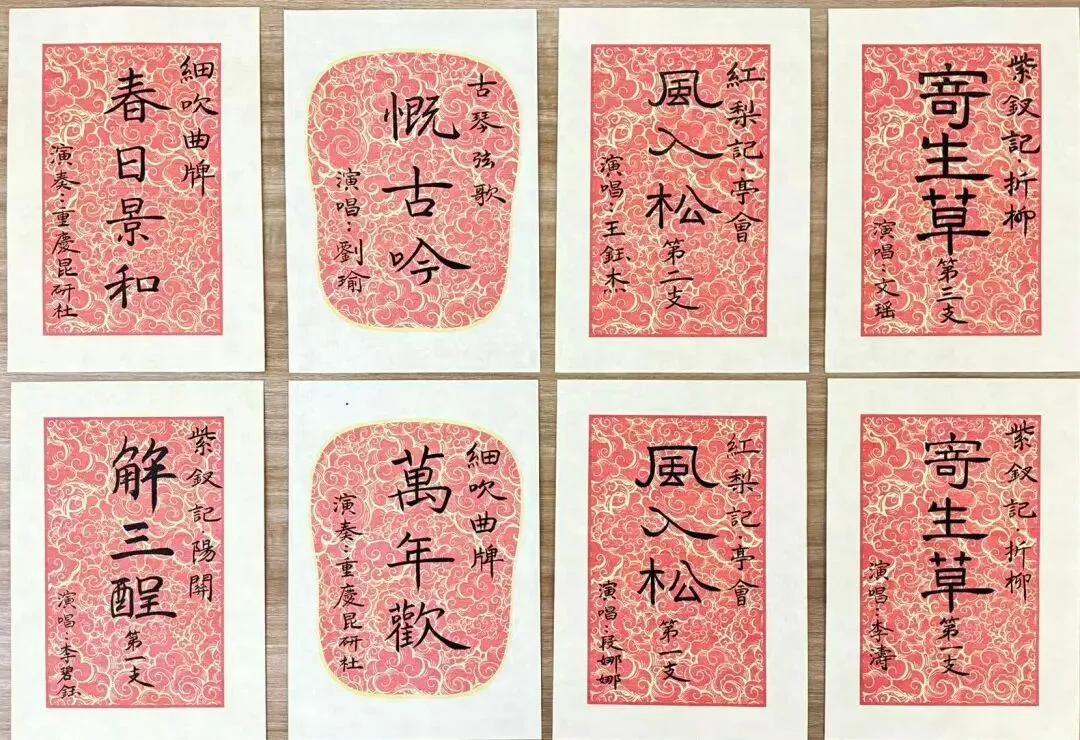 細吹曲牌
春日景和
演奏:重慶昆研社
古琴弦歌
慨古吟
演唱:劉瑜
紅梨記·亭會
風入松 第二支
演唱:王鈺杰
紫釵記·折柳
寄生草 第三支
演唱:文瑶
紫釵記·陽關
解三酲 第一支
演唱:李碧鈺
細吹曲牌
萬年歡
演奏:重慶昆研社
紅梨記·亭會
風入松 第一支
演唱:段娜娜
紫釵記·折柳
寄生草 第一支
演唱:李濤